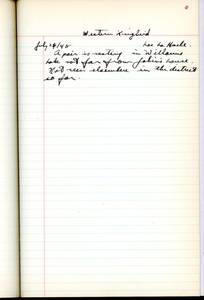 Western Kingbird
July 14/42 Lac La Hache.
A pair is nesting in Williams
Lake not far from John's house.
Not seen elsewhere in the district
so far.